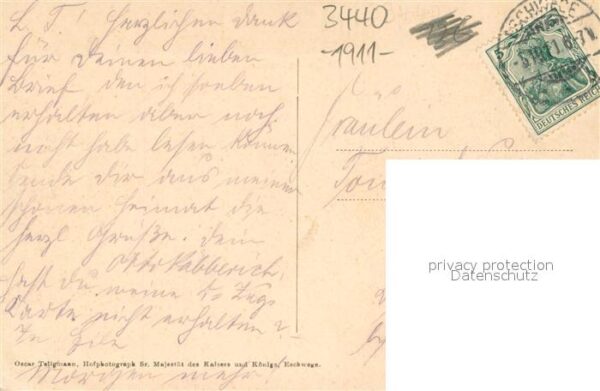 L. T! Herzlichen Dank
für Deinen lieben
Brief den ich soeben
erhalten aber noch
nicht habe lesen können
sende Dir aus meiner
schönen Heimat die
herzl Grüße. Dein
Otto
Hast Du meine
Karte nicht erhalten?
In Eile
Oscar Tellgmann, Hofphotograph Sr. Majestät des Kaisers und Königs, Eschwege.
Morgen mehr!
3440
-1911-
ESCHWEGE
DEUTSCHES REICH
Fräulein
privacy protection
Datenschutz